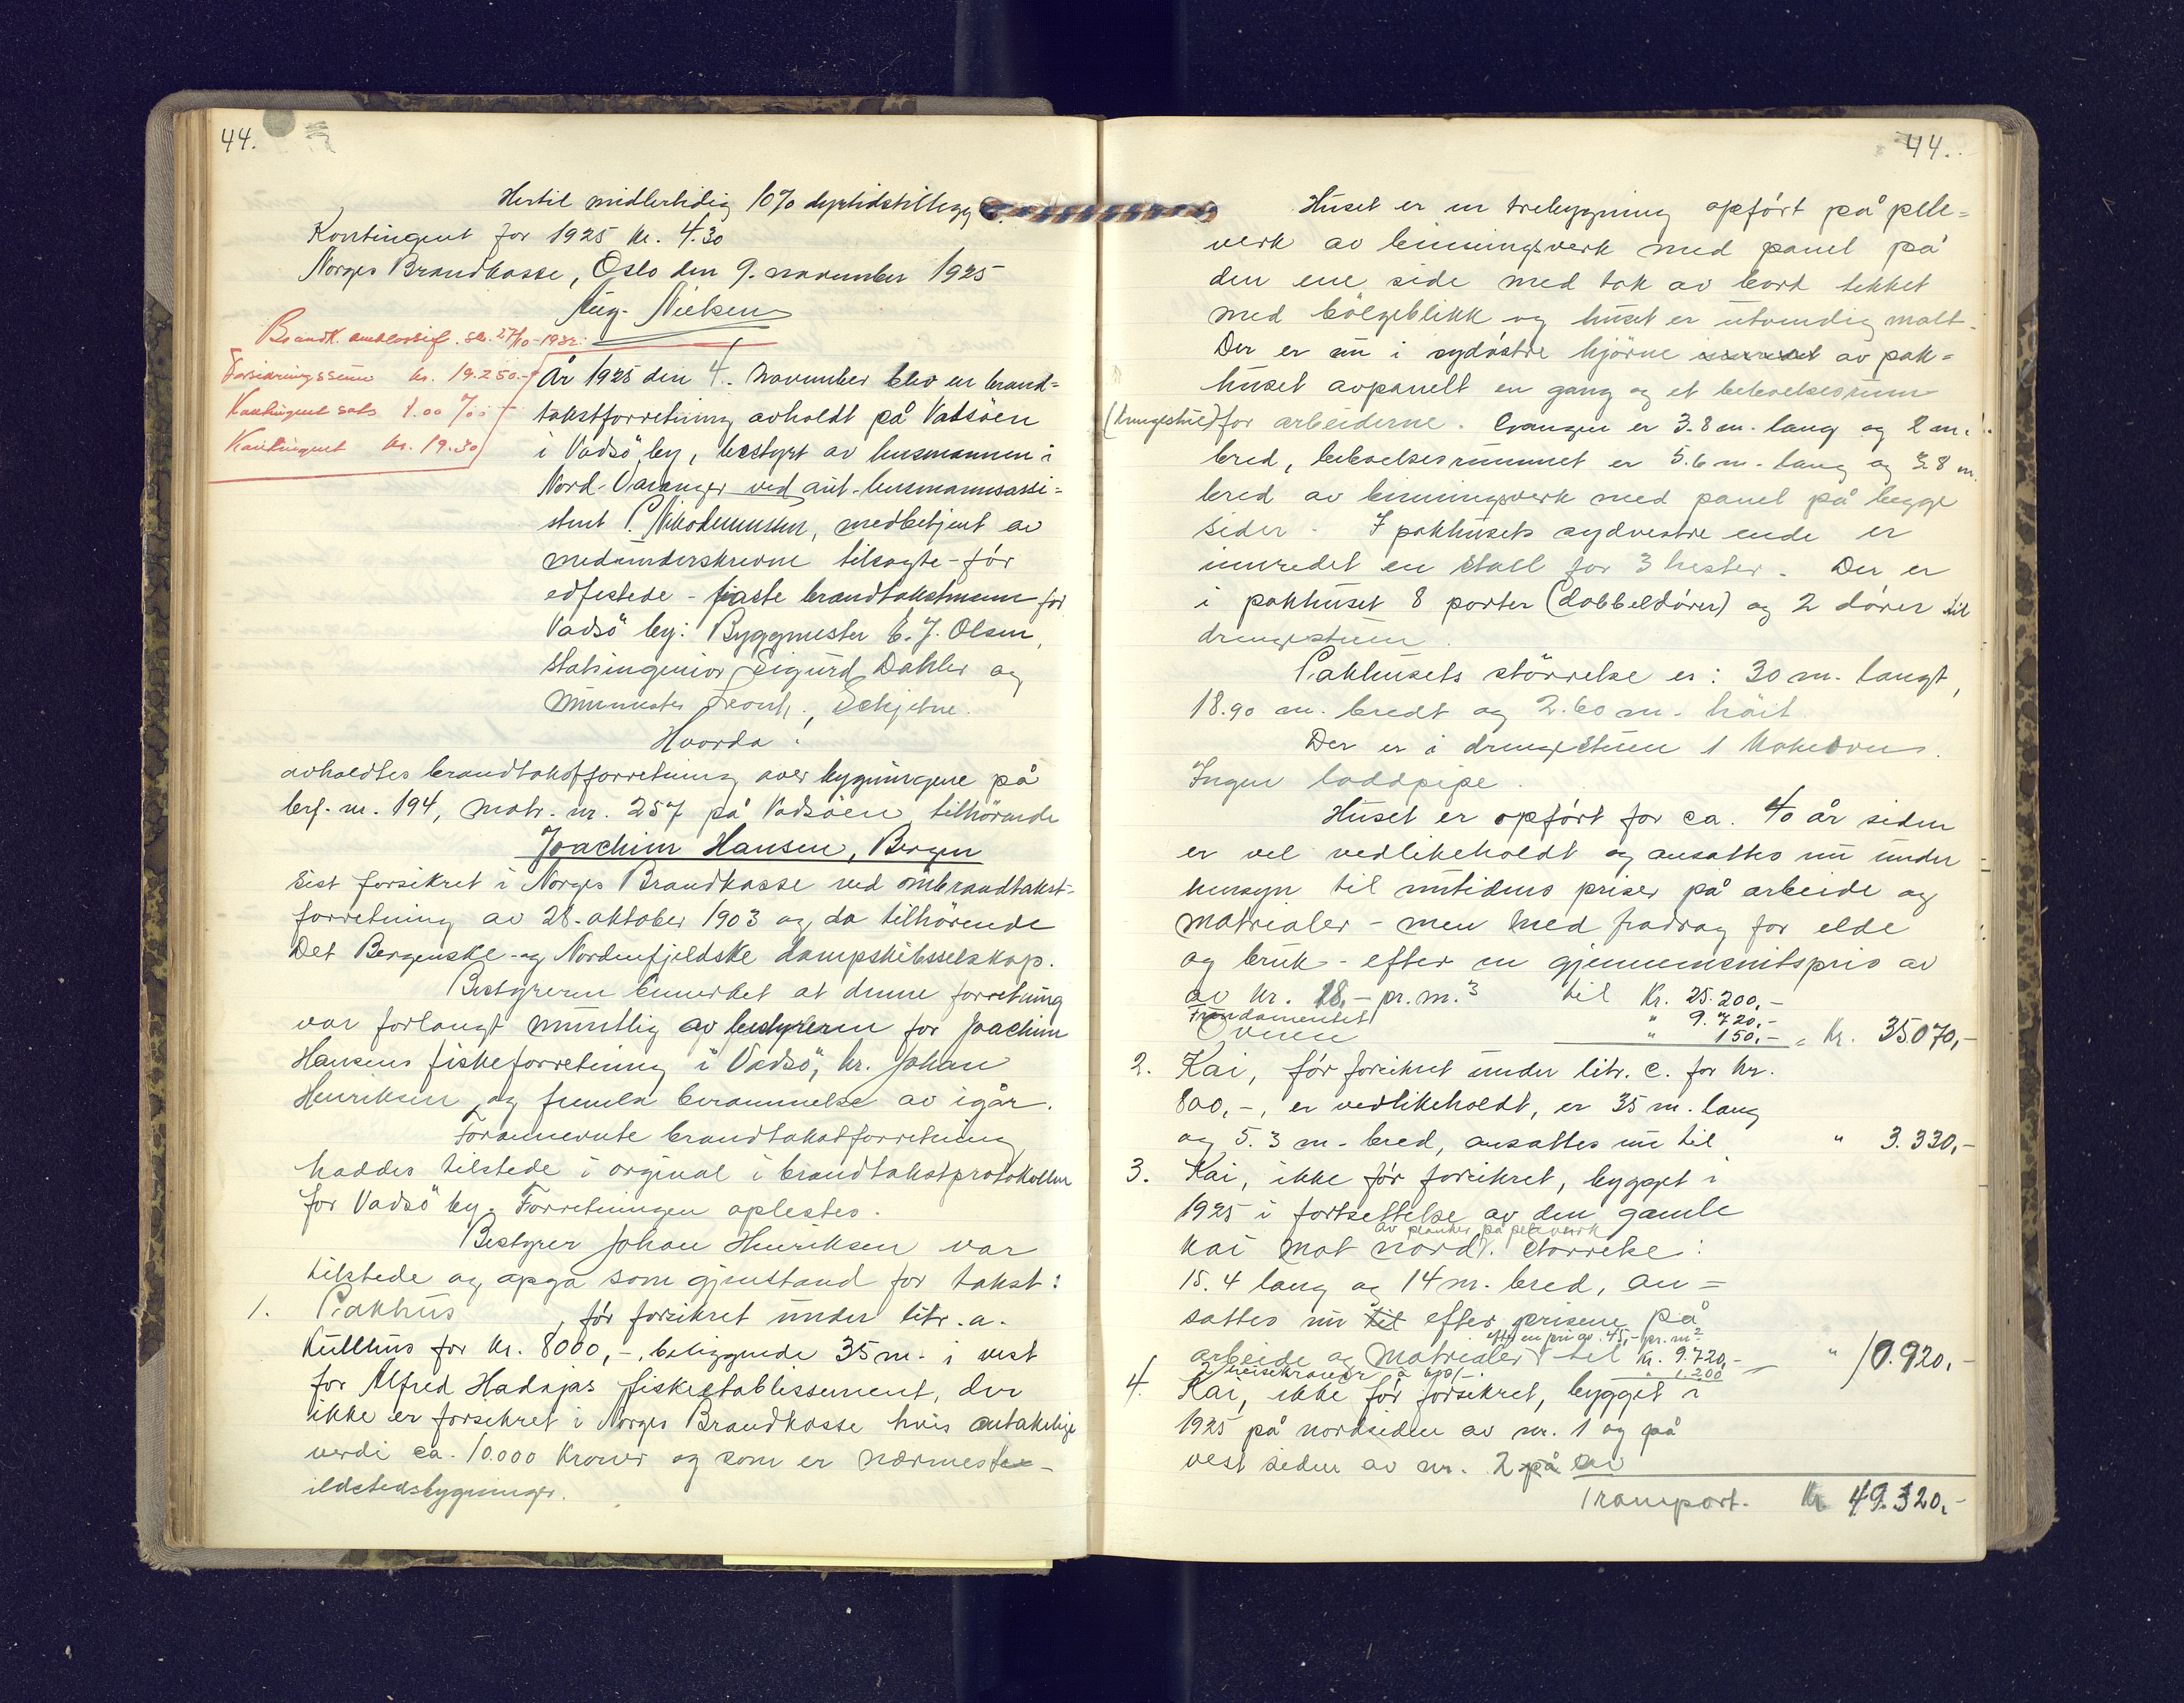 44.
Hertil midlertidig 10% dyrtidstillegg
Kontingent for 1925 kr. 4.30
Norges Brandkasse, Oslo den 9. november 1925
Aug. Nielsen
Brandk. 27/10-1932.
Forsikringssum kr. 19.250.-
Kontingent sats 1.00 ‰
Kontingent kr. 19.30
År 1925 den 4. november blev en brand=
takstforretning avholdt på Vadsöen
i Vadsö by, bestyrt av lensmannen i
Nord-Varanger ved aut. lensmannsassi=
stent P. Nikodemussen, medbetjent av
medunderskrevne tilsagte - før
edfestede - faste brandtakstmenn for
Vadsö by: Byggmester E. J. Olsen,
statsingeniør Sigurd Dahler og
murmester Leonh. Schjelne.
Hvorda:
avholdtes brandtakstforretning over bygningene på
brf. nr. 194, matr. nr. 257 på Vadsöen tilhörende
Joachim Hansen, Bergen
sist forsikret i Norges Brandkasse ved ombrandtakst-
forretning av 28. oktober 1903 og da tilhörende
Det Bergenske- og Nordenfjeldske dampskibsselskap.
Bestyreren bemerket at denne forretning
var forlangt muntlig av bestyreren for Joachim
Hansens fiskeforretning i Vadsö, hr. Johan
Henriksen og fremla berammelse av igår.
Forannevnte brandtakstforretning
haddes tilstede i orginal i brandtakstprotokollen
for Vadsö by. Forretningen oplestes.
Bestyrer Johan Henriksen var
tilstede og opga som gjenstand for takst:
1. Pakhus, før forsikret under litr. a.
Kullhus for kr. 8000,-, beliggende 35 m. i vest
for Alfred Hadajas fisketablissement, der
ikke er forsikret i Norges Brandkasse hvis antakelige
verdi ca. 10.000 Kroner og som er nærmeste
ildstedsbygninger.
44.
Huset er en trebygning opført på pele=
verk av binningsverk med panel på
den ene side med tak av bord tekket
med bölgeblikk og huset er utvendig malt.
Der er nu i sydöstre hjörne innredet av pak=
huset avpanelt en gang og et bekvelsesrum
(drengestue) for arbeiderne. Gangen er 3.8 m. lang og 2 m.
bred, bekvelsesrummet er 5.6 m. lang og 3.8 m.
bred av binningsverk med panel på begge
sider. I pakhusets sydvestre ende er
innredet en stall for 3 hester. Der er
i pakhuset 8 porter (dobbeldører) og 2 dører til
drengestuen.
Pakhusets störrelse er: 30 m. langt,
18.90 m. bredt og 2.60 m. höit.
Der er i drengestuen 1 kokeovn.
Ingen loddpipe.
Huset er opført for ca. 40 år siden
er vel vedlikeholdt og ansattes nu under
hensyn til nutidens priser på arbeide og
matrialer - men med fradrag for elde
og bruk - efter en gjennemsnitspris av
av kr. 18,- pr. m.³ til Kr. 25.200,-
Fundamentet " 9.720,-
Ovnen " 150,- = Kr. 35.070,-
2. Kai, før forsikret under litr. c. for kr.
800,-, er vedlikeholdt, er 35 m. lang
og 5.3 m. bred, ansattes nu til " 3.330,-
3. Kai, ikke før forsikret, bygget i
1925 i fortsettelse av den gamle
av planker på peleverk
kai mot nord. Störrelse:
15.4 lang og 14 m. bred, an=
sattes nu til efter prisene på
efter en pris av 45,- pr. m²
arbeide og matrialer til Kr. 9.720,-
2 heisekraner à 600,- " 1.200 " 10.920,-
4. Kai, ikke før forsikret, bygget i
1925 på nordsiden av nr. 1 og på
vest siden av nr. 2 på av
Transport. Kr. 49.320,-